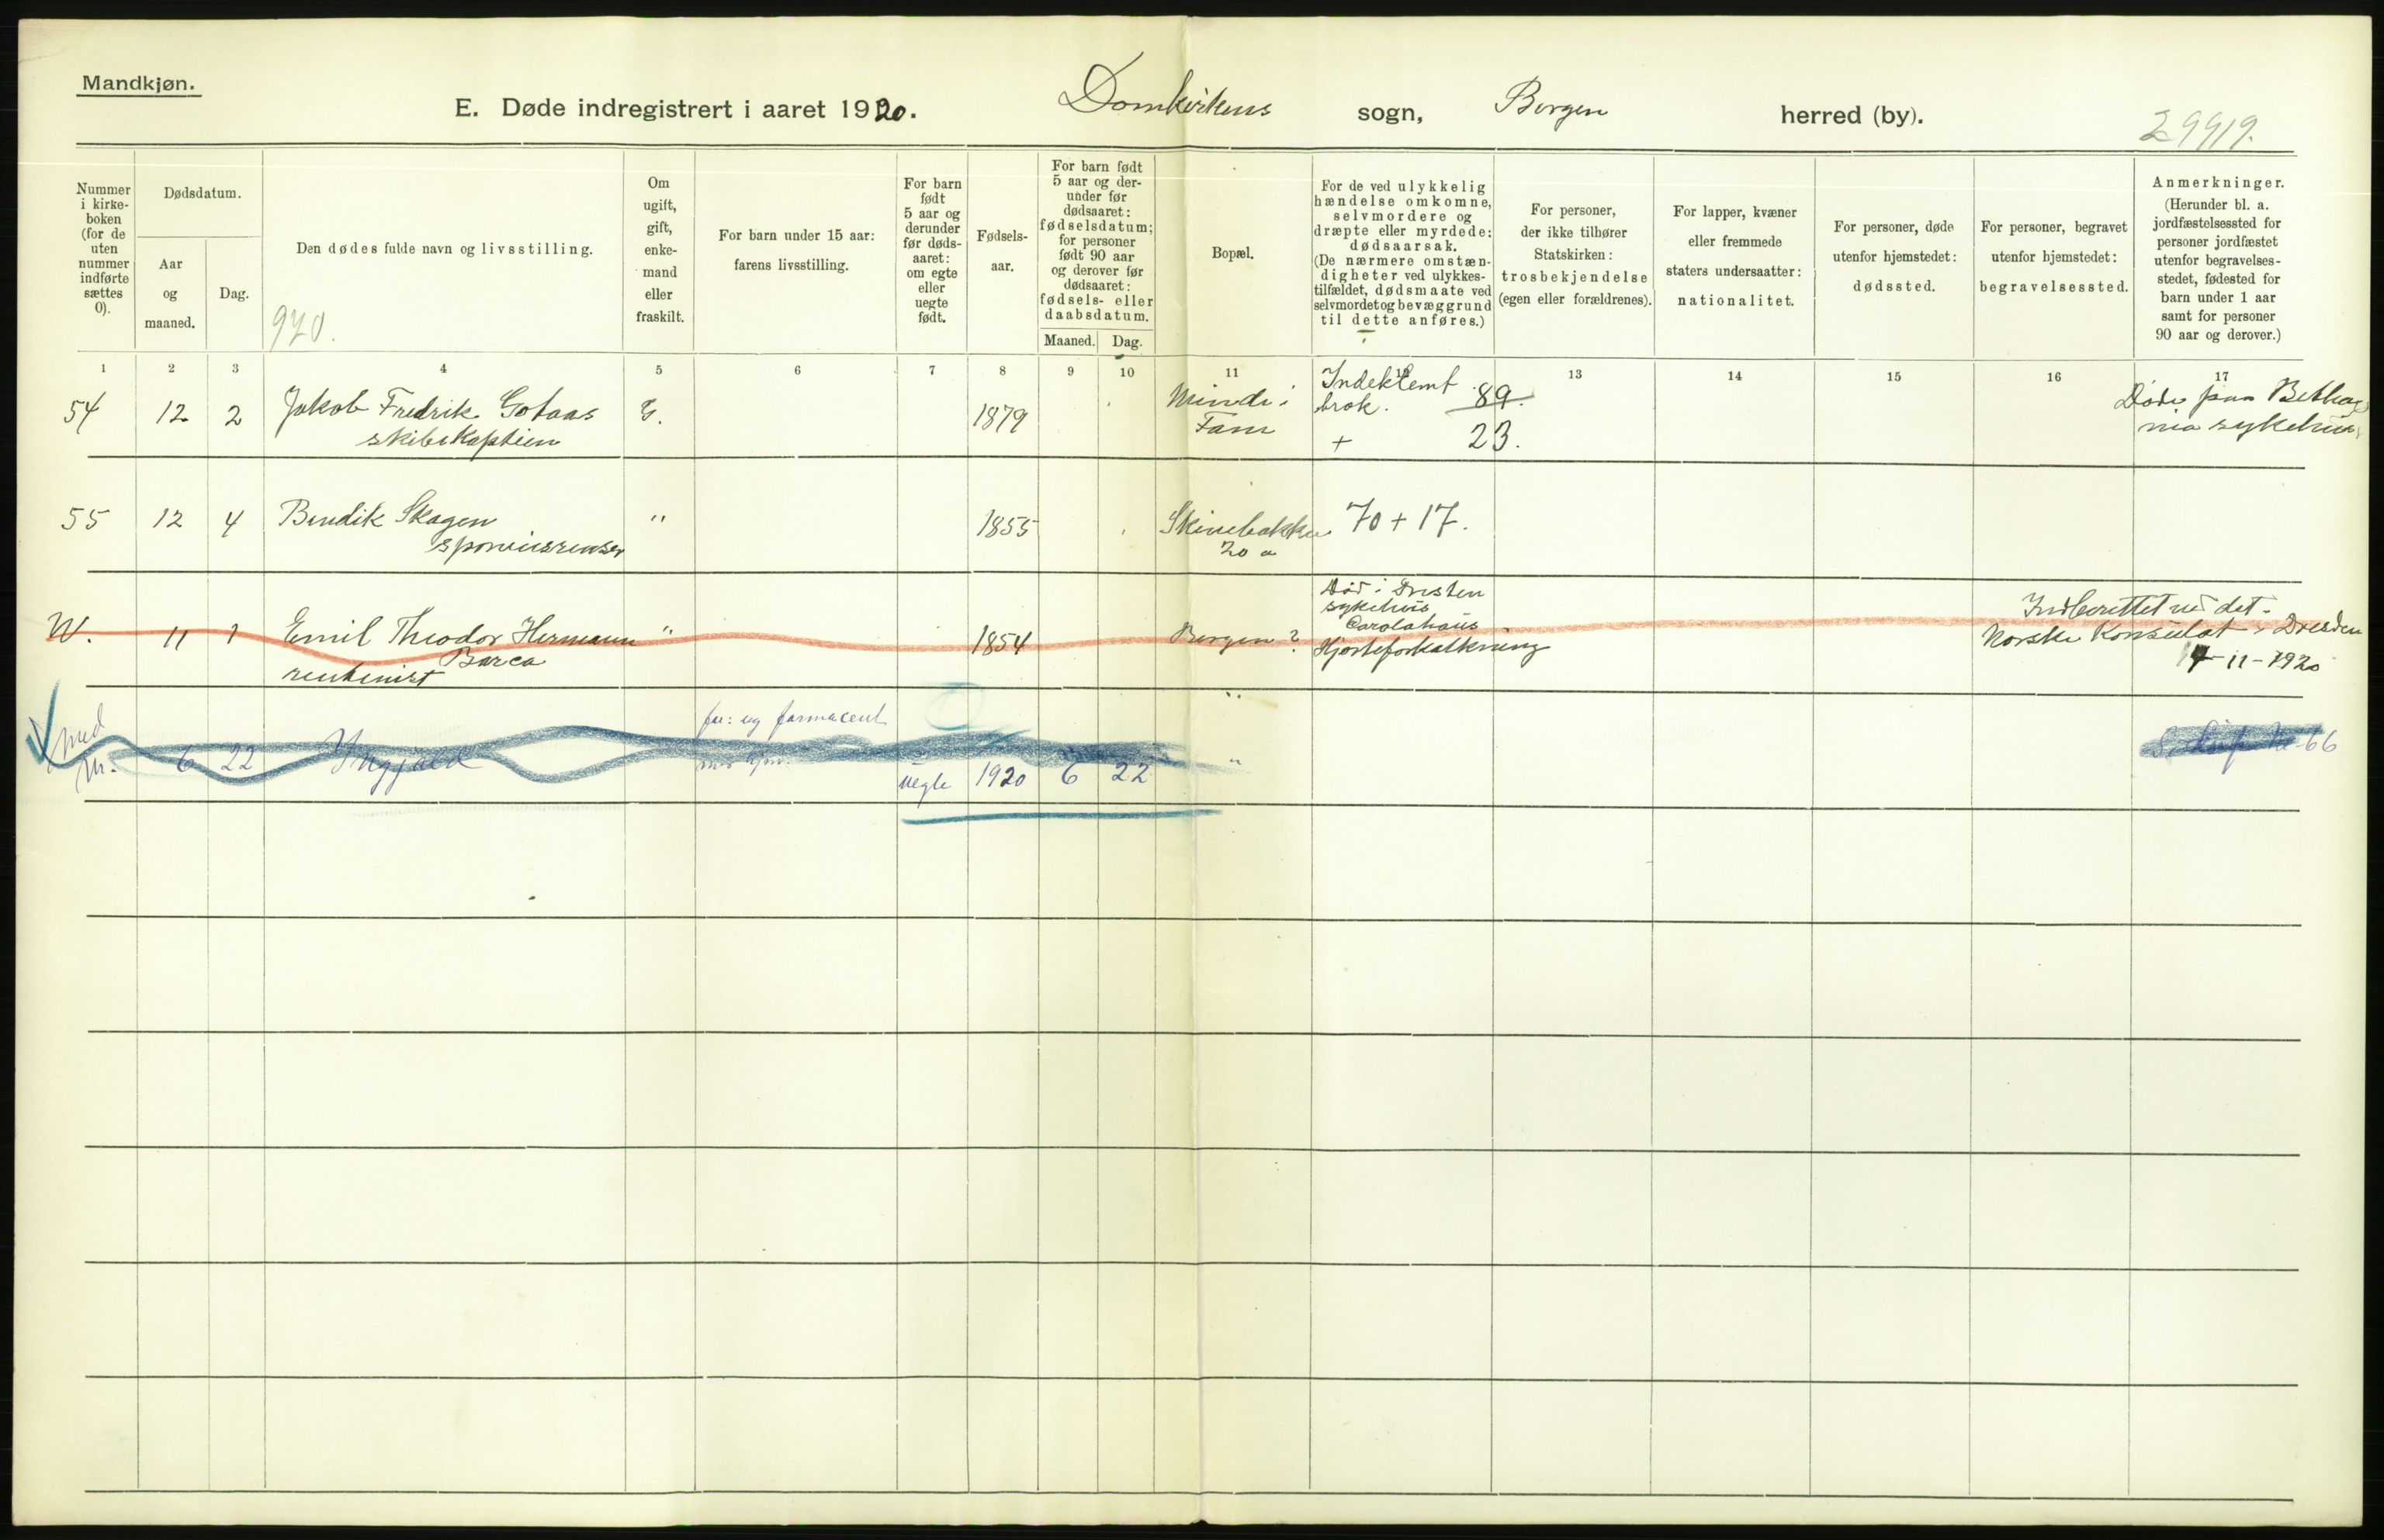 Mandkjøn.
E. Døde indregistrert i aaret 1920.
Domkirkens sogn, Bergen herred (by).
Nummer
i kirke-
boken
(for de
uten
nummer
indførte
sættes
0).
Dødsdatum.
Aar
og
maaned.
Dag.
Den dødes fulde navn og livsstilling.
970.
Om
ugift,
gift,
enke-
mand
eller
fraskilt.
For barn under 15 aar:
farens livsstilling.
For barn
født
5 aar og
derunder
før døds-
aaret:
om egte
eller
uegte
født.
Fødsels-
aar.
For barn født
5 aar og der-
under før
dødsaaret:
fødselsdatum;
for personer
født 90 aar
og derover før
dødsaaret:
fødsels- eller
daabsdatum.
Maaned. Dag.
Bopæl.
For de ved ulykkelig
hændelse omkomne,
selvmordere og
dræpte eller myrdede:
dødsaarsak.
(De nærmere omstæn-
digheter ved ulykkes-
tilfældet, dødsmaate ved
selvmordet og bevæggrund
til dette anføres.)
For personer,
der ikke tilhører
Statskirken:
trosbekjendelse
(egen eller forældrenes).
For lapper, kvæner
eller fremmede
staters undersaatter:
nationalitet.
For personer, døde
utenfor hjemstedet:
dødssted.
For personer, begravet
utenfor hjemstedet:
begravelsessted.
Anmerkninger.
(Herunder bl. a.
jordfæstelsessted for
personer jordfæstet
utenfor begravelses-
stedet, fødested for
barn under 1 aar
samt for personer
90 aar og derover.)
1 2 3 4 5 6 7 8 9 10 11 12 13 14 15 16 17
54 12 2 Jakob Fredrik Gotaas G. 1879 Minde i Indeklemt 89. Døde paa Betha-
skibskaptein Fane brok. + 23. nia sykehus
55 12 4 Bendik Skagen " 1855 70 + 17.
20 a
11 1 Emil Theodor Hermann " 1854 Bergen? Død i Dresden Indberettet ved det
Barca sykehus Norske Konsulat i Dresden
rentenist Carolahaus 11-1920
Hjerteforkalkning
fa: ug farmaceut
6 22 Ingjald uegte 1920 6 22 " 66